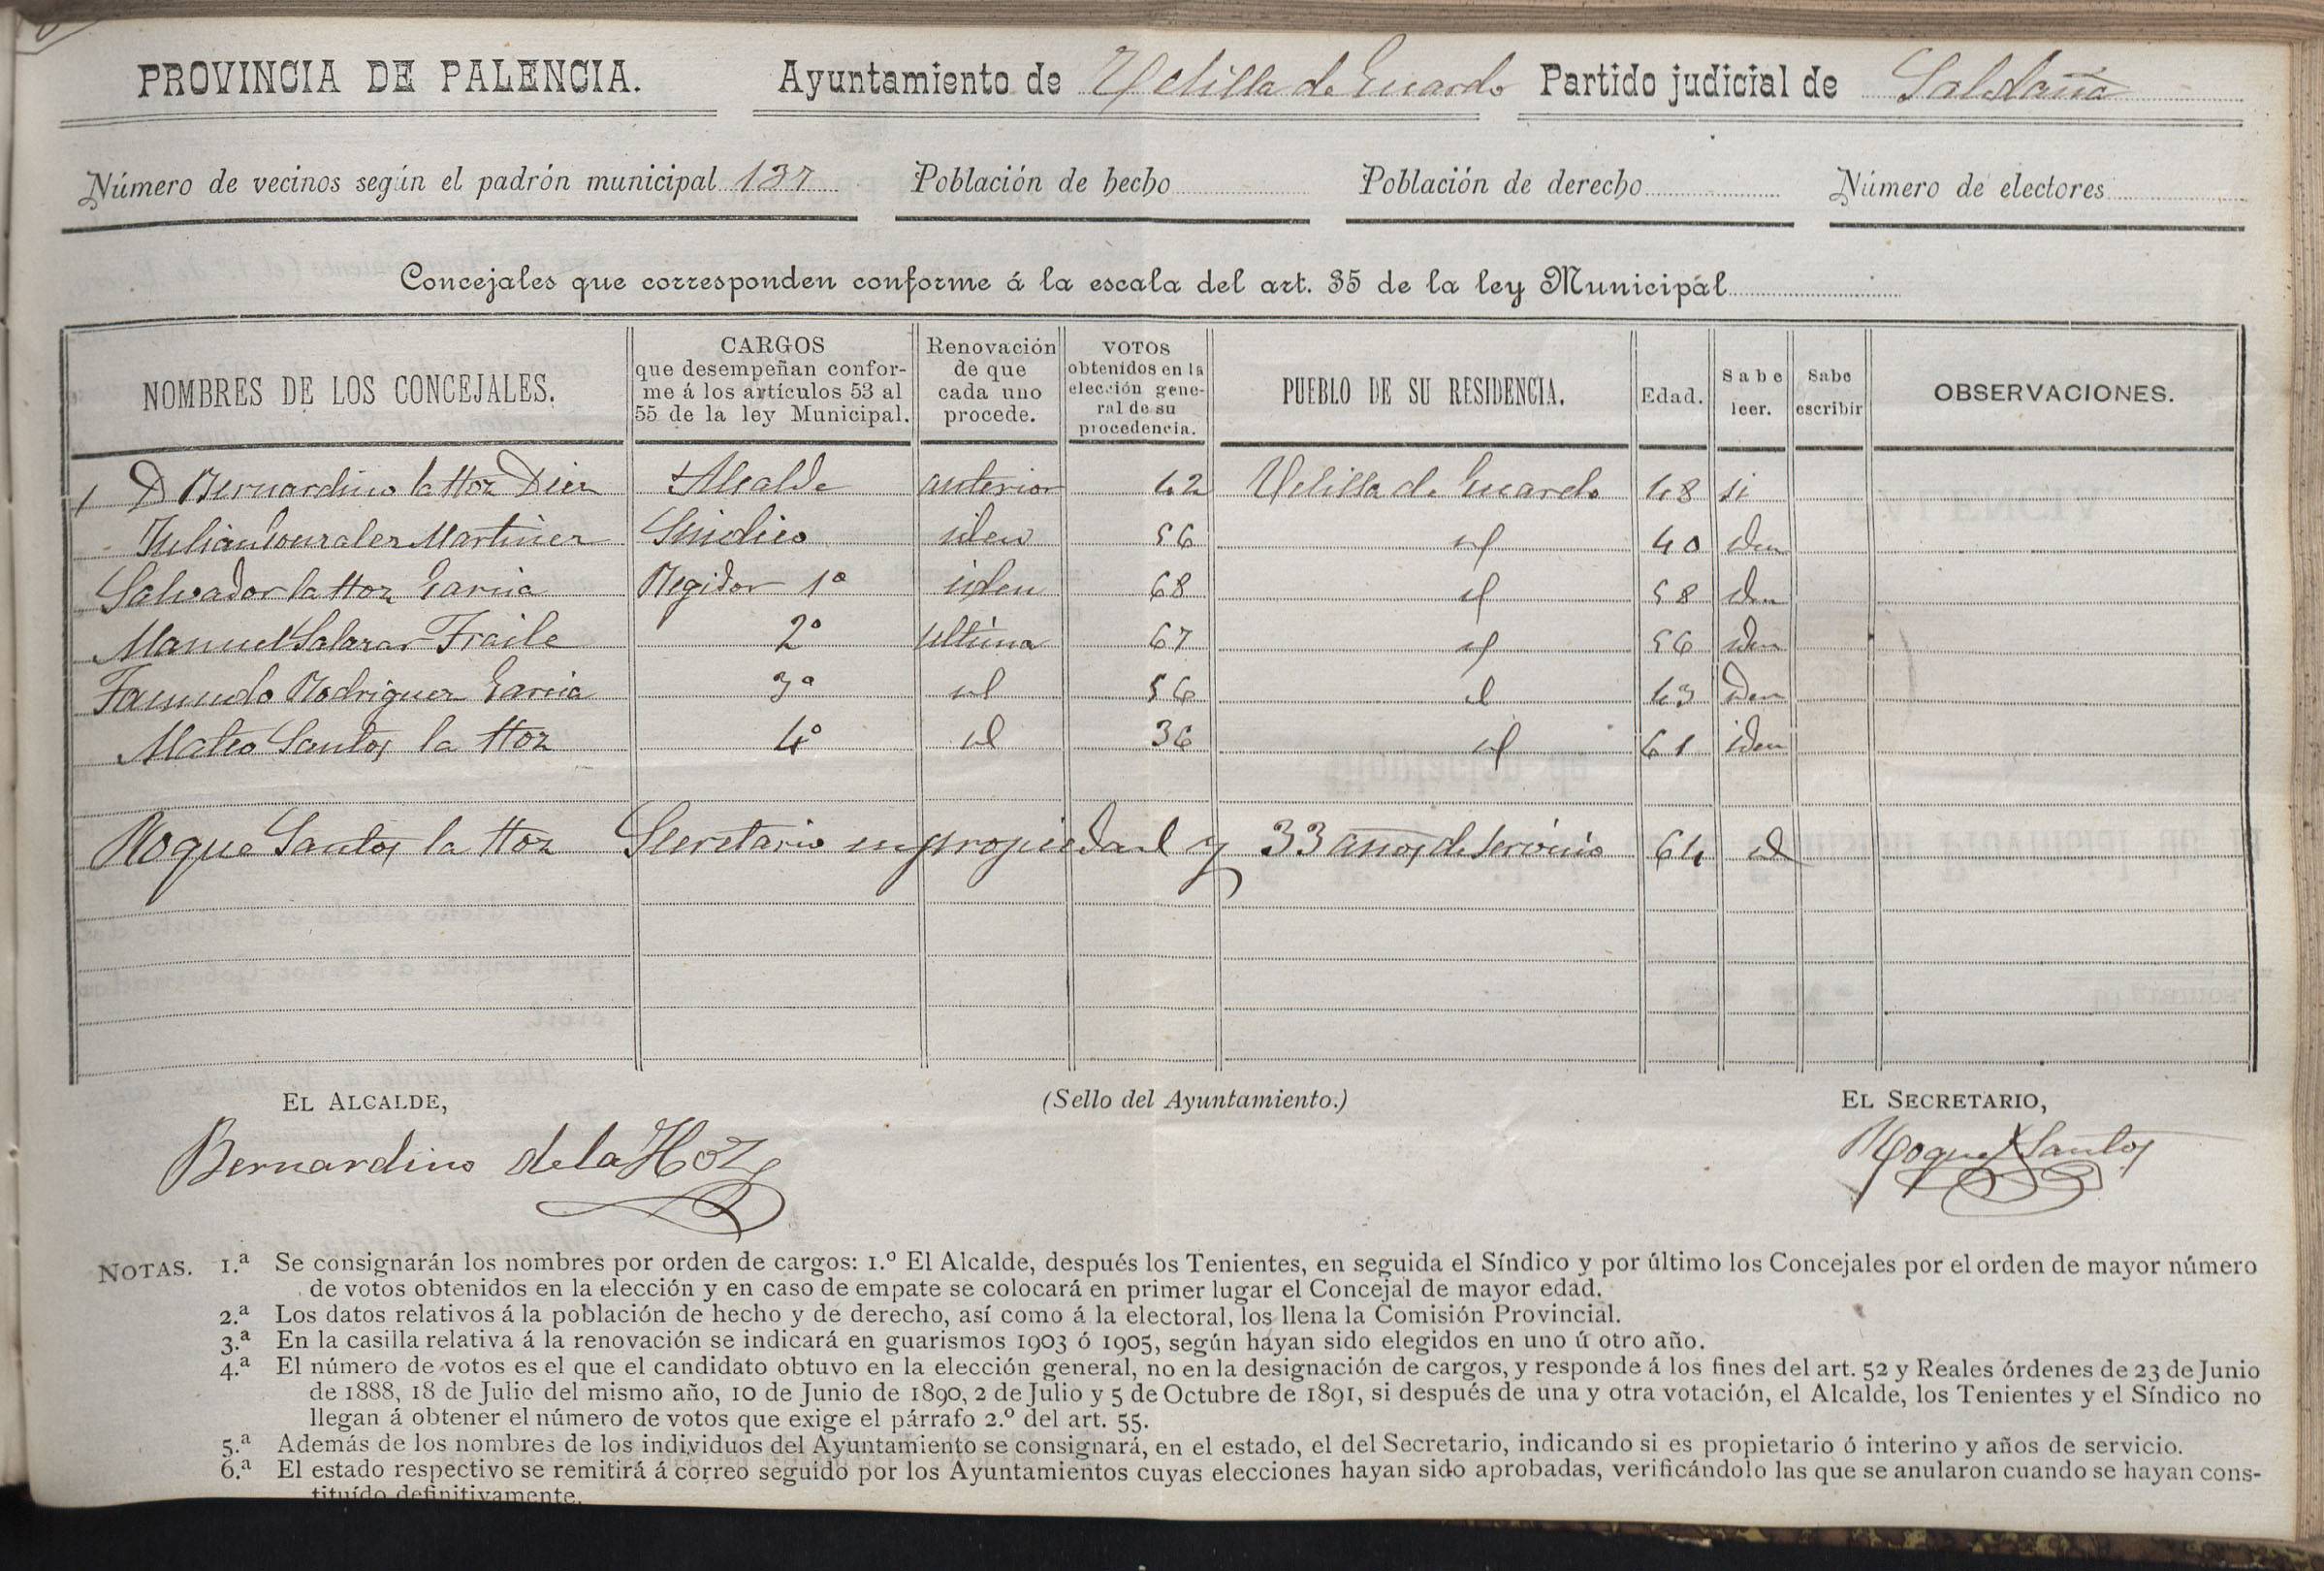 PROVINCIA DE PALENCIA. Ayuntamiento de Velilla de Guardo Partido judicial de Saldaña
Número de vecinos según el padrón municipal 137 Población de hecho Población de derecho Número de electores
Concejales que corresponden conforme á la escala del art. 35 de la ley Municipal
NOMBRES DE LOS CONCEJALES. CARGOS que desempeñan confor- me á los artículos 53 al 55 de la ley Municipal. Renovación de que cada uno procede. VOTOS obtenidos en la elección gene- ral de su procedencia. PUEBLO DE SU RESIDENCIA. Edad. Sabe leer. Sabe escribir OBSERVACIONES.
D Bernardino la Hoz Diez Alcalde anterior 42 Velilla de Guardo 48 si
Julian Gonzalez Martinez Sindico iden 56 id 40 iden
Salvador la Hoz Garcia Regidor 1º iden 68 id 58 iden
Manuel Salazar Fraile 2º ultima 67 id 56 iden
Facundo Rodriguez Garcia 3º id 56 id 43 iden
Mateo Santos la Hoz 4º id 36 id 61 iden
Roque Santos la Hoz Secretario en propiedad y 33 años de servicio 64 id
EL ALCALDE, (Sello del Ayuntamiento.) EL SECRETARIO,
Bernardino de la Hoz Roque Santos
NOTAS. 1.ª Se consignarán los nombres por orden de cargos: 1.º El Alcalde, después los Tenientes, en seguida el Síndico y por último los Concejales por el orden de mayor número
de votos obtenidos en la elección y en caso de empate se colocará en primer lugar el Concejal de mayor edad.
2.ª Los datos relativos á la población de hecho y de derecho, así como á la electoral, los llena la Comisión Provincial.
3.ª En la casilla relativa á la renovación se indicará en guarismos 1903 ó 1905, según hayan sido elegidos en uno ú otro año.
4.ª El número de votos es el que el candidato obtuvo en la elección general, no en la designación de cargos, y responde á los fines del art. 52 y Reales órdenes de 23 de Junio
de 1888, 18 de Julio del mismo año, 10 de Junio de 1890, 2 de Julio y 5 de Octubre de 1891, si después de una y otra votación, el Alcalde, los Tenientes y el Síndico no
llegan á obtener el número de votos que exige el párrafo 2.º del art. 55.
5.ª Además de los nombres de los individuos del Ayuntamiento se consignará, en el estado, el del Secretario, indicando si es propietario ó interino y años de servicio.
6.ª El estado respectivo se remitirá á correo seguido por los Ayuntamientos cuyas elecciones hayan sido aprobadas, verificándolo las que se anularon cuando se hayan cons-
tituído definitivamente.